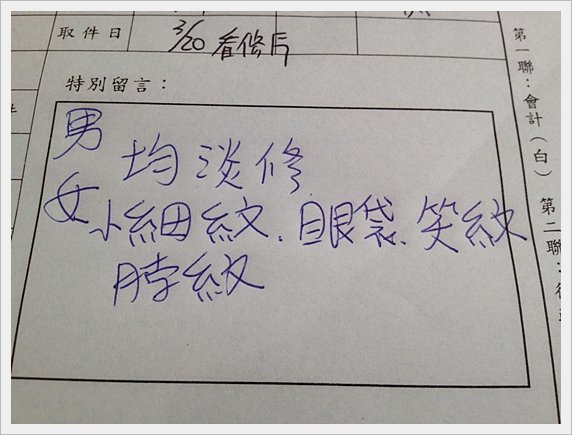 取件日 3/20 看修片
特別留言：
男 均淡修
女 小細紋、眼袋、笑紋
脖紋
第一聯：會計（白）
第二聯：